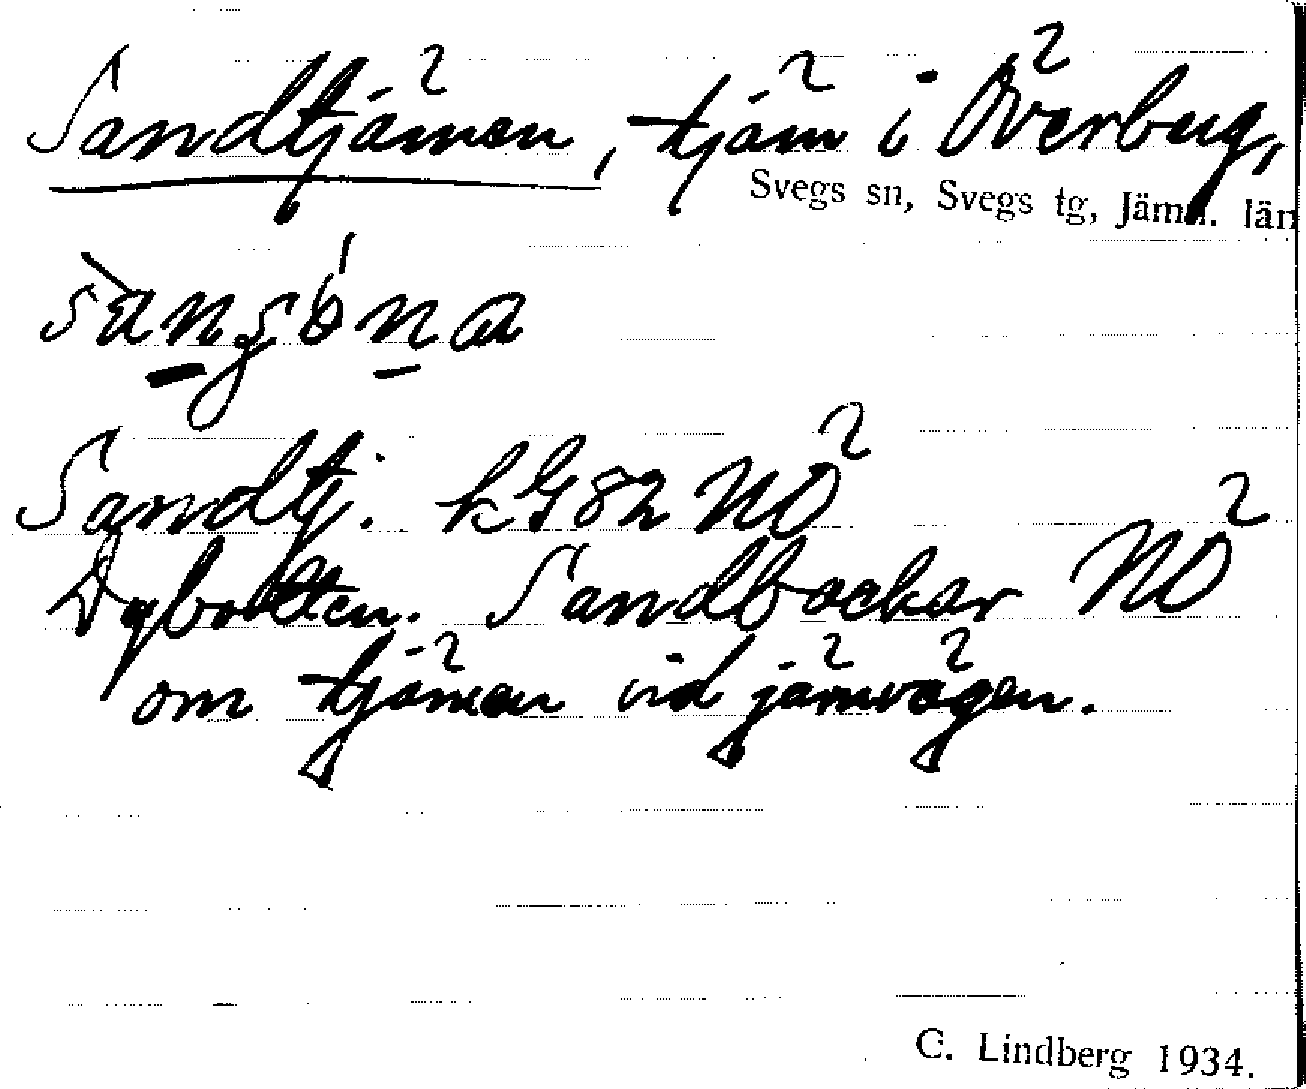 Sandtjärnen, tjärn i Överberg,
Svegs sn, Svegs tg, Jämtl. län
Sandtj. kG82 NÖ
Dybotten. Sandbackar NÖ
om tjärnen vid järnvägen.
C. Lindberg 1934.